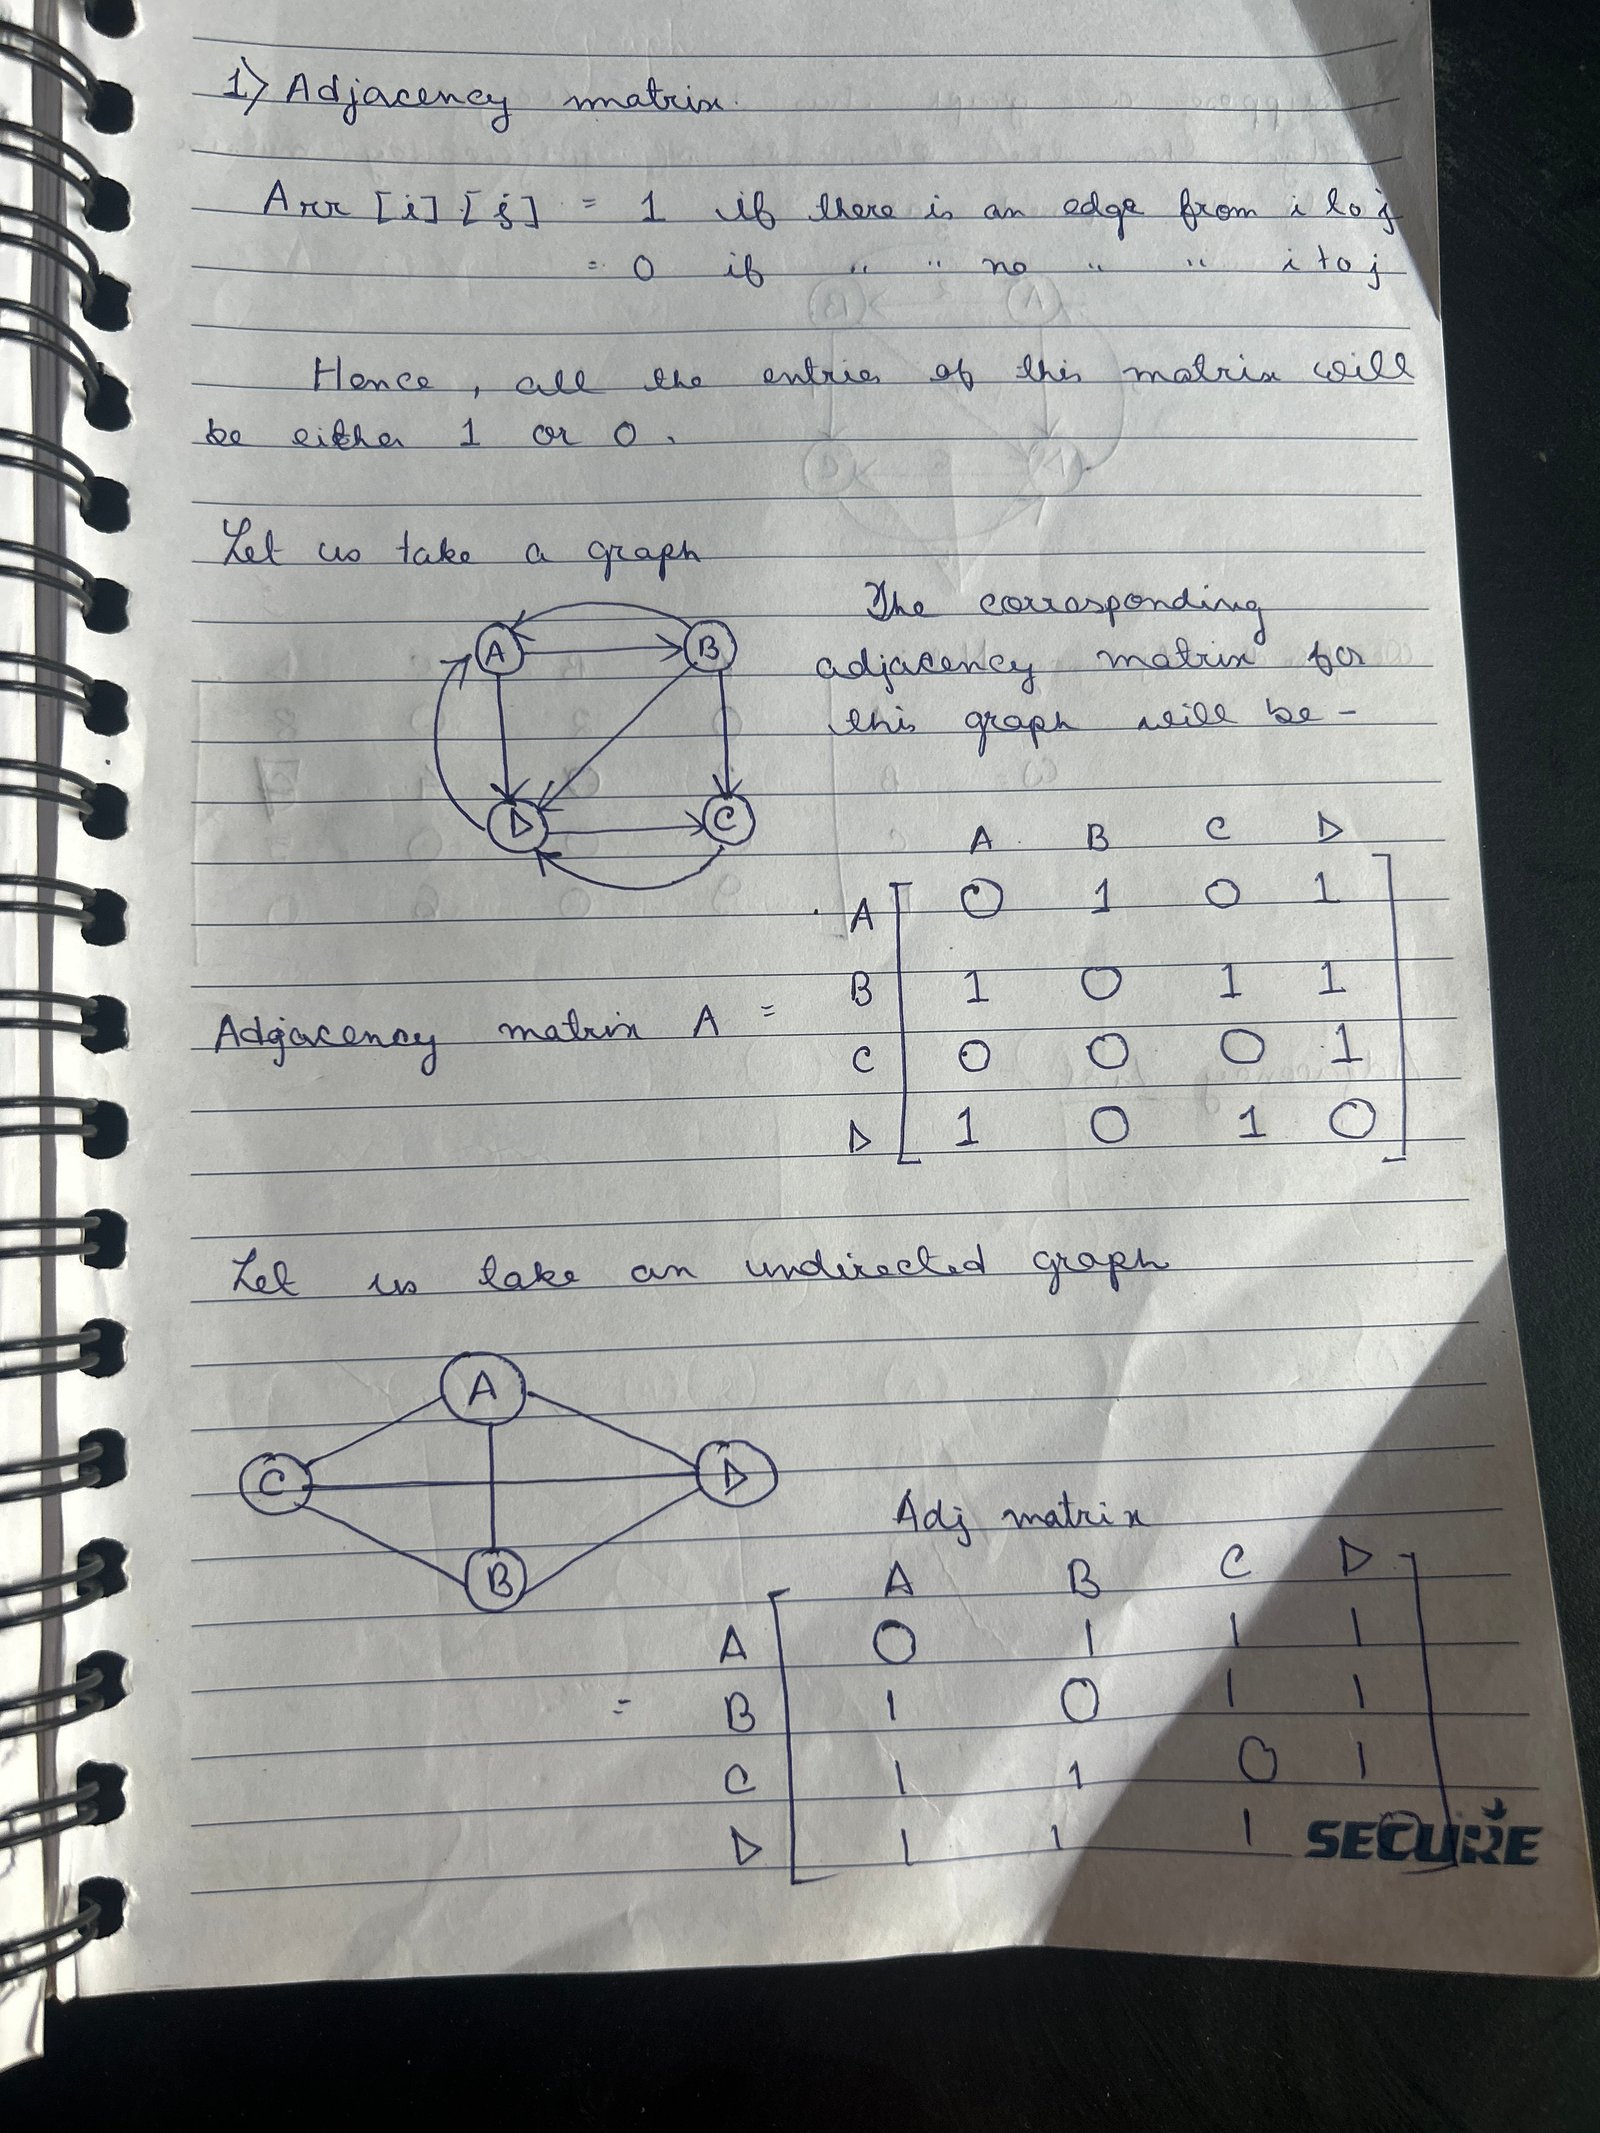 1) Adjacency matrix.
Arr [i] [j] = 1 if there is an edge from i to j
= 0 if " " no " " i to j
Hence, all the entries of this matrix will
be either 1 or 0.
Let us take a graph
A B
D C
The corresponding
adjacency matrix for
this graph will be -
A B C D
A 0 1 0 1
B 1 0 1 1
Adjacency matrix A =
C 0 0 0 1
D 1 0 1 0
Let us take an undirected graph
A
C D
B
Adj matrix
A B C D
A 0 1 1 1
= B 1 0 1 1
C 1 1 0 1
D 1 1 1 0
SECURE